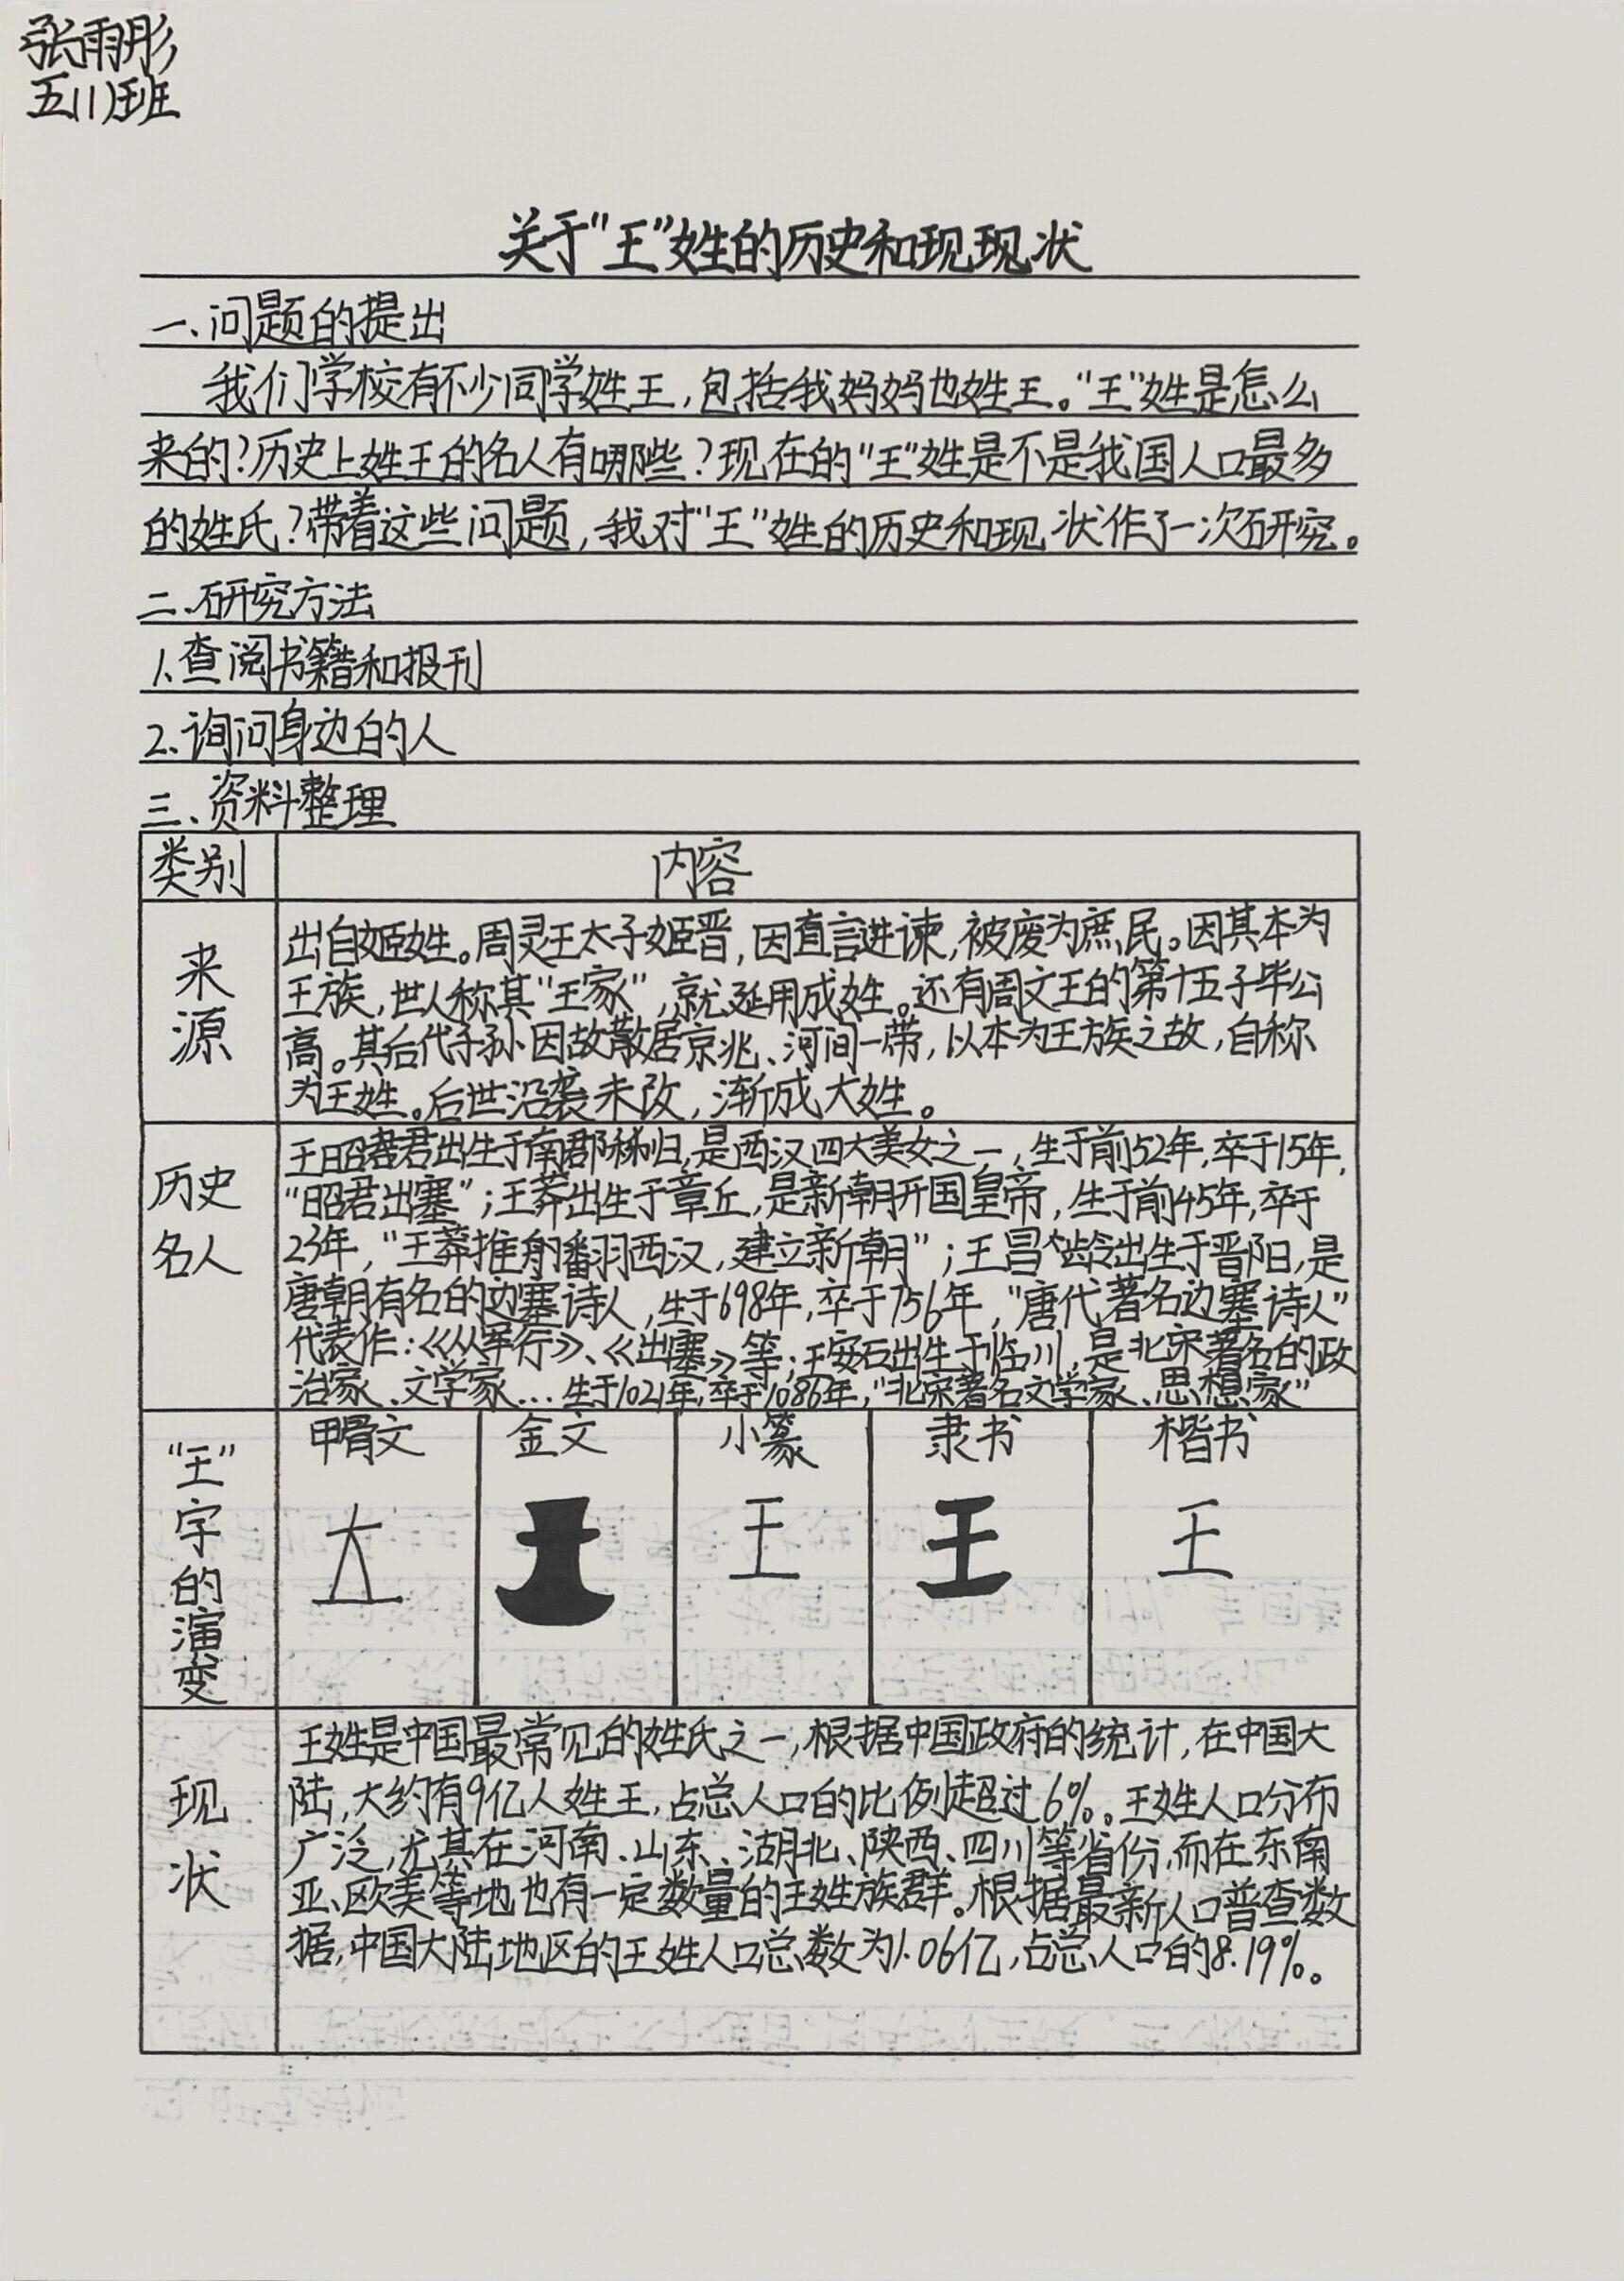 张雨彤
五(1)班
关于“王”姓的历史和现现状
一、问题的提出
我们学校有不少同学姓王，包括我妈妈也姓王。“王”姓是怎么
来的？历史上姓王的名人有哪些？现在的“王”姓是不是我国人口最多
的姓氏？带着这些问题，我对“王”姓的历史和现状作了一次研究。
二、研究方法
1、查阅书籍和报刊
2、询问身边的人
三、资料整理
类别 内容
来源
出自姬姓。周灵王太子姬晋，因直言进谏，被废为庶民。因其本为
王族，世人称其“王家”，就延用成姓。还有周文王的第十五子毕公
高。其后代子孙因故散居京兆、河间一带，以本为王族之故，自称
为王姓。后世沿袭未改，渐成大姓。
历史名人
王昭君出生于南郡秭归，是西汉四大美女之一，生于前52年，卒于15年，
“昭君出塞”；王莽出生于章丘，是新朝开国皇帝，生于前45年，卒于
23年，“王莽推翻西汉，建立新朝”；王昌龄出生于晋阳，是
唐朝有名的边塞诗人，生于698年，卒于756年，“唐代著名边塞诗人”
代表作：《从军行》、《出塞》等；王安石出生于临川，是北宋著名的政
治家、文学家…生于1021年，卒于1086年，“北宋著名文学家、思想家”
“王”字的演变
甲骨文 金文 小篆 隶书 楷书
王 王 王
现状
王姓是中国最常见的姓氏之一，根据中国政府的统计，在中国大
陆，大约有9亿人姓王，占总人口的比例超过6%。王姓人口分布
广泛，尤其在河南、山东、湖北、陕西、四川等省份，而在东南
亚、欧美等地也有一定数量的王姓族群。根据最新人口普查数
据，中国大陆地区的王姓人口总数为1.06亿，占总人口的8.19%。